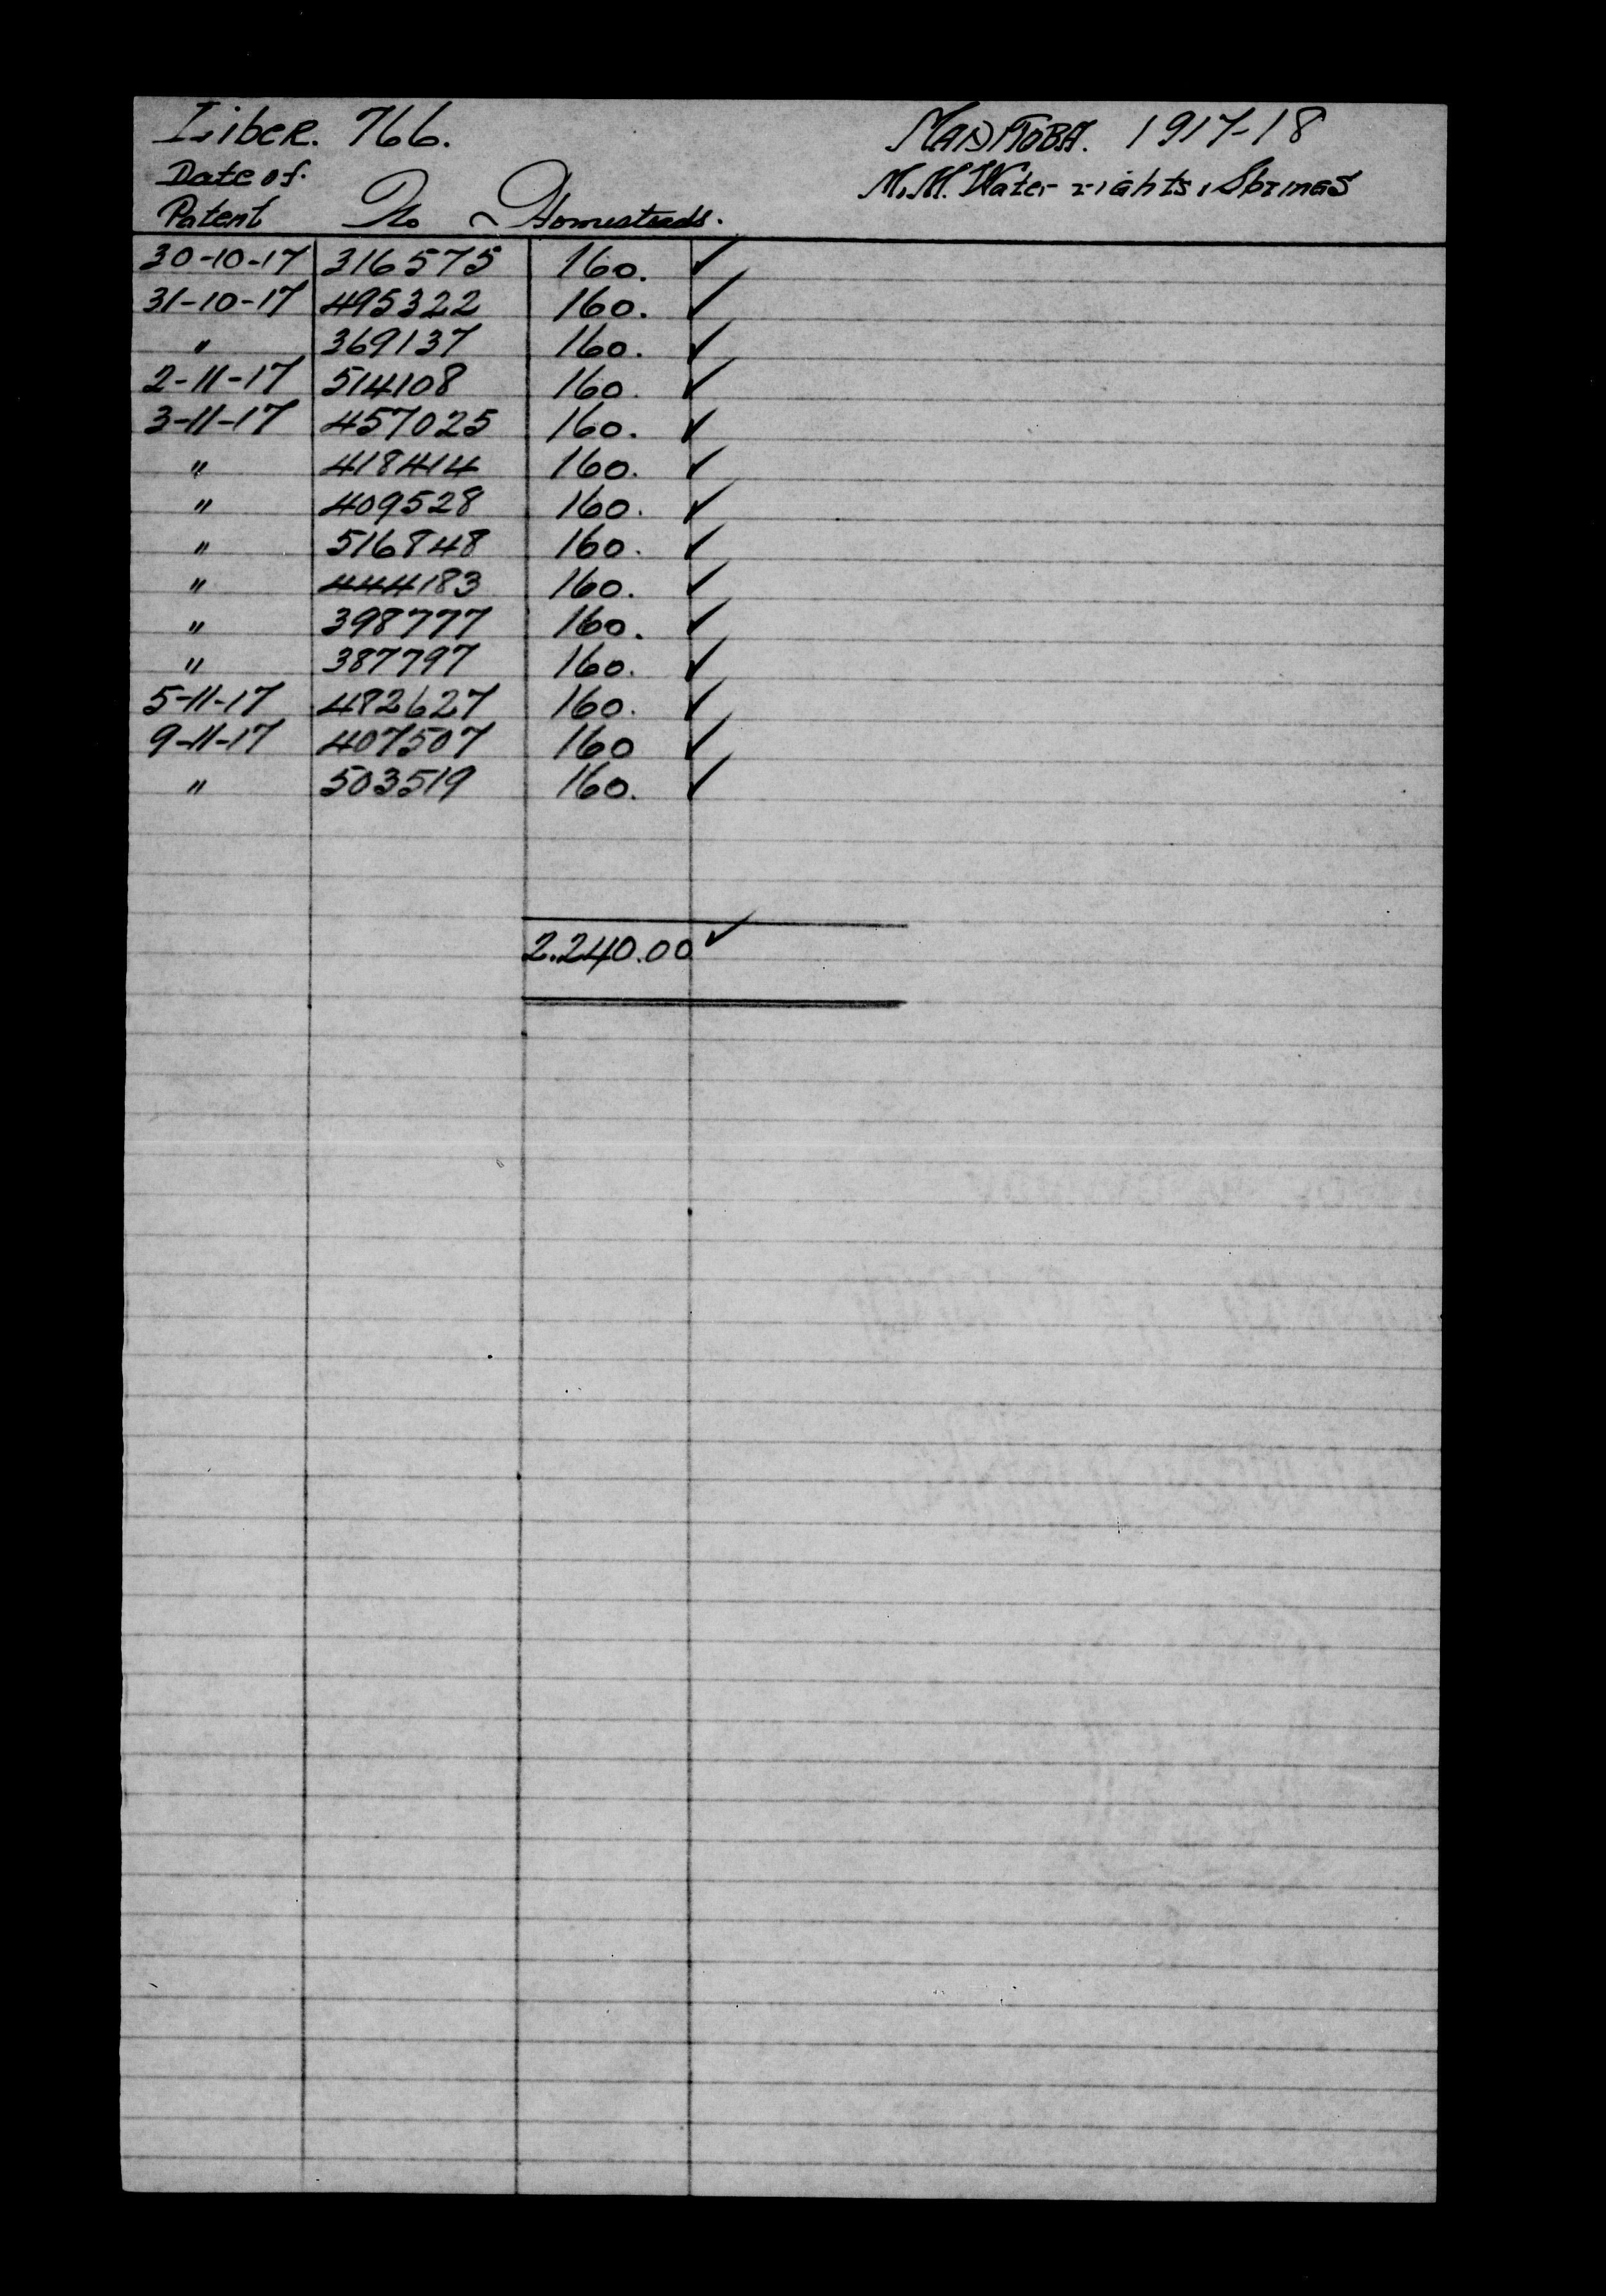 Liber. 766. MANITOBA. 1917-18
Date of. M.M. Water rights, Springs
Patent No Homesteads.
30-10-17 316575 160. ✓
31-10-17 495322 160. ✓
" 369137 160. ✓
2-11-17 514108 160. ✓
3-11-17 457025 160. ✓
" 418414 160. ✓
" 409528 160. ✓
" 516848 160. ✓
" 444183 160. ✓
" 398777 160. ✓
" 387797 160. ✓
5-11-17 482627 160. ✓
9-11-17 407507 160 ✓
" 503519 160. ✓
2.240.00 ✓